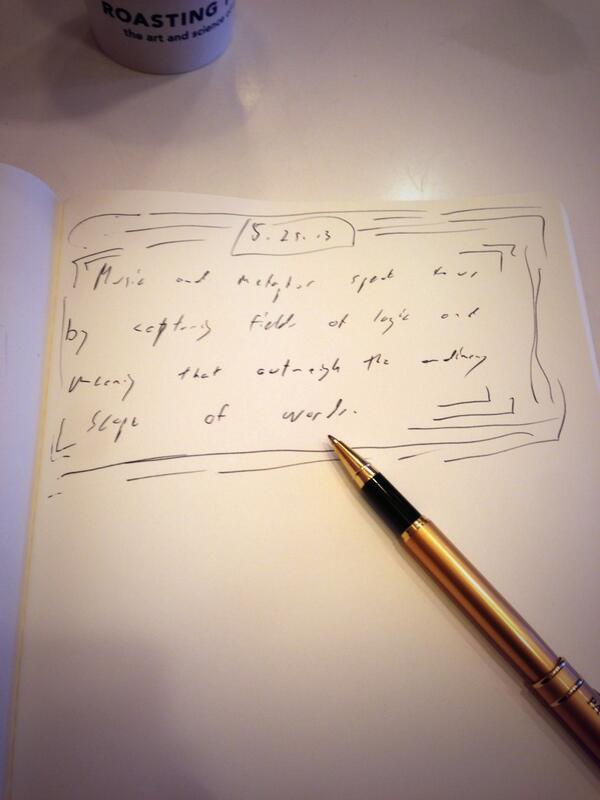 ROASTING
the art and science
5.25.13
Music and metaphor speak to us
by capturing fields of logic and
meaning that outweigh the ordinary
scope of words.